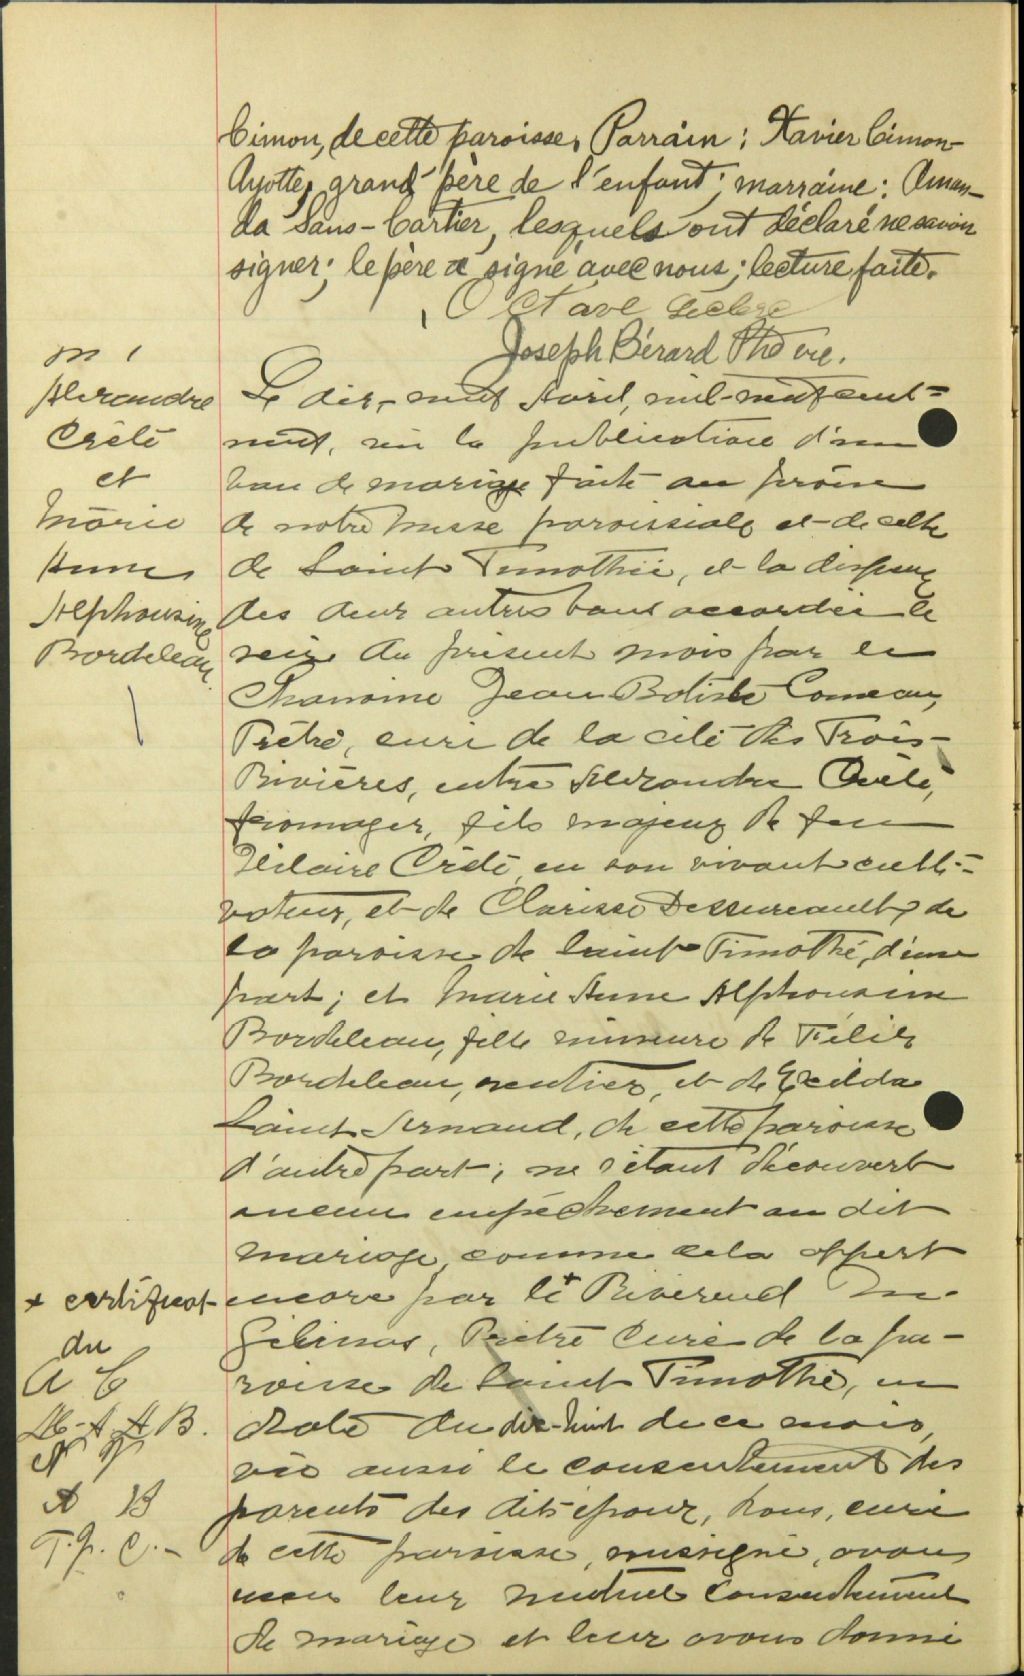 Cimon, de cette paroisse. Parrain: Xavier Cimon-
Ayotte, grand-père de l'enfant; marraine: Aman-
da Sans-Cartier, lesquels ont déclaré ne savoir
signer; le père a signé avec nous; lecture faite.
Octave Leclerc
Joseph Bérard Ptre vic.
m 1
Alexandre
Crête
et
Marie
Anne
Alphonsine
Bordeleau.
Le dix-neuf Avril, mil-neuf-cent-
neuf, vu la publication d'un
ban de mariage faite au prône
de notre messe paroissiale et de celle
de Saint Timothée, et la dispense
des deux autres bans accordée le
seize du présent mois par le
Chanoine Jean Batiste Comeau,
Prêtre, curé de la cité des Trois-
Rivières, entre Alexandre Crête,
fromager, fils majeur de feu
Hilaire Crête, en son vivant culti-
vateur, et de Clarisse Dessureault, de
la paroisse de Saint Timothé, d'une
part; et Marie Anne Alphonsine
Bordeleau, fille mineure de Félix
Bordeleau, rentier, et de Exilda
Saint Arnaud, de cette paroisse
d'autre part; ne s'étant découvert
aucun empêchement au dit
mariage, comme cela appert
encore par le + Révérend M.
Gélinas, Prêtre Curé de la pa-
roisse de Saint Timothé, en
date du dix-huit de ce mois,
vu aussi le consentement des
parents des dits époux, Nous, curé
de cette paroisse, soussigné, avons
reçu leur mutuel consentement
de mariage et leur avons donné
+ certificat
du
A C
M-A A B.
A B
T. J. C.-